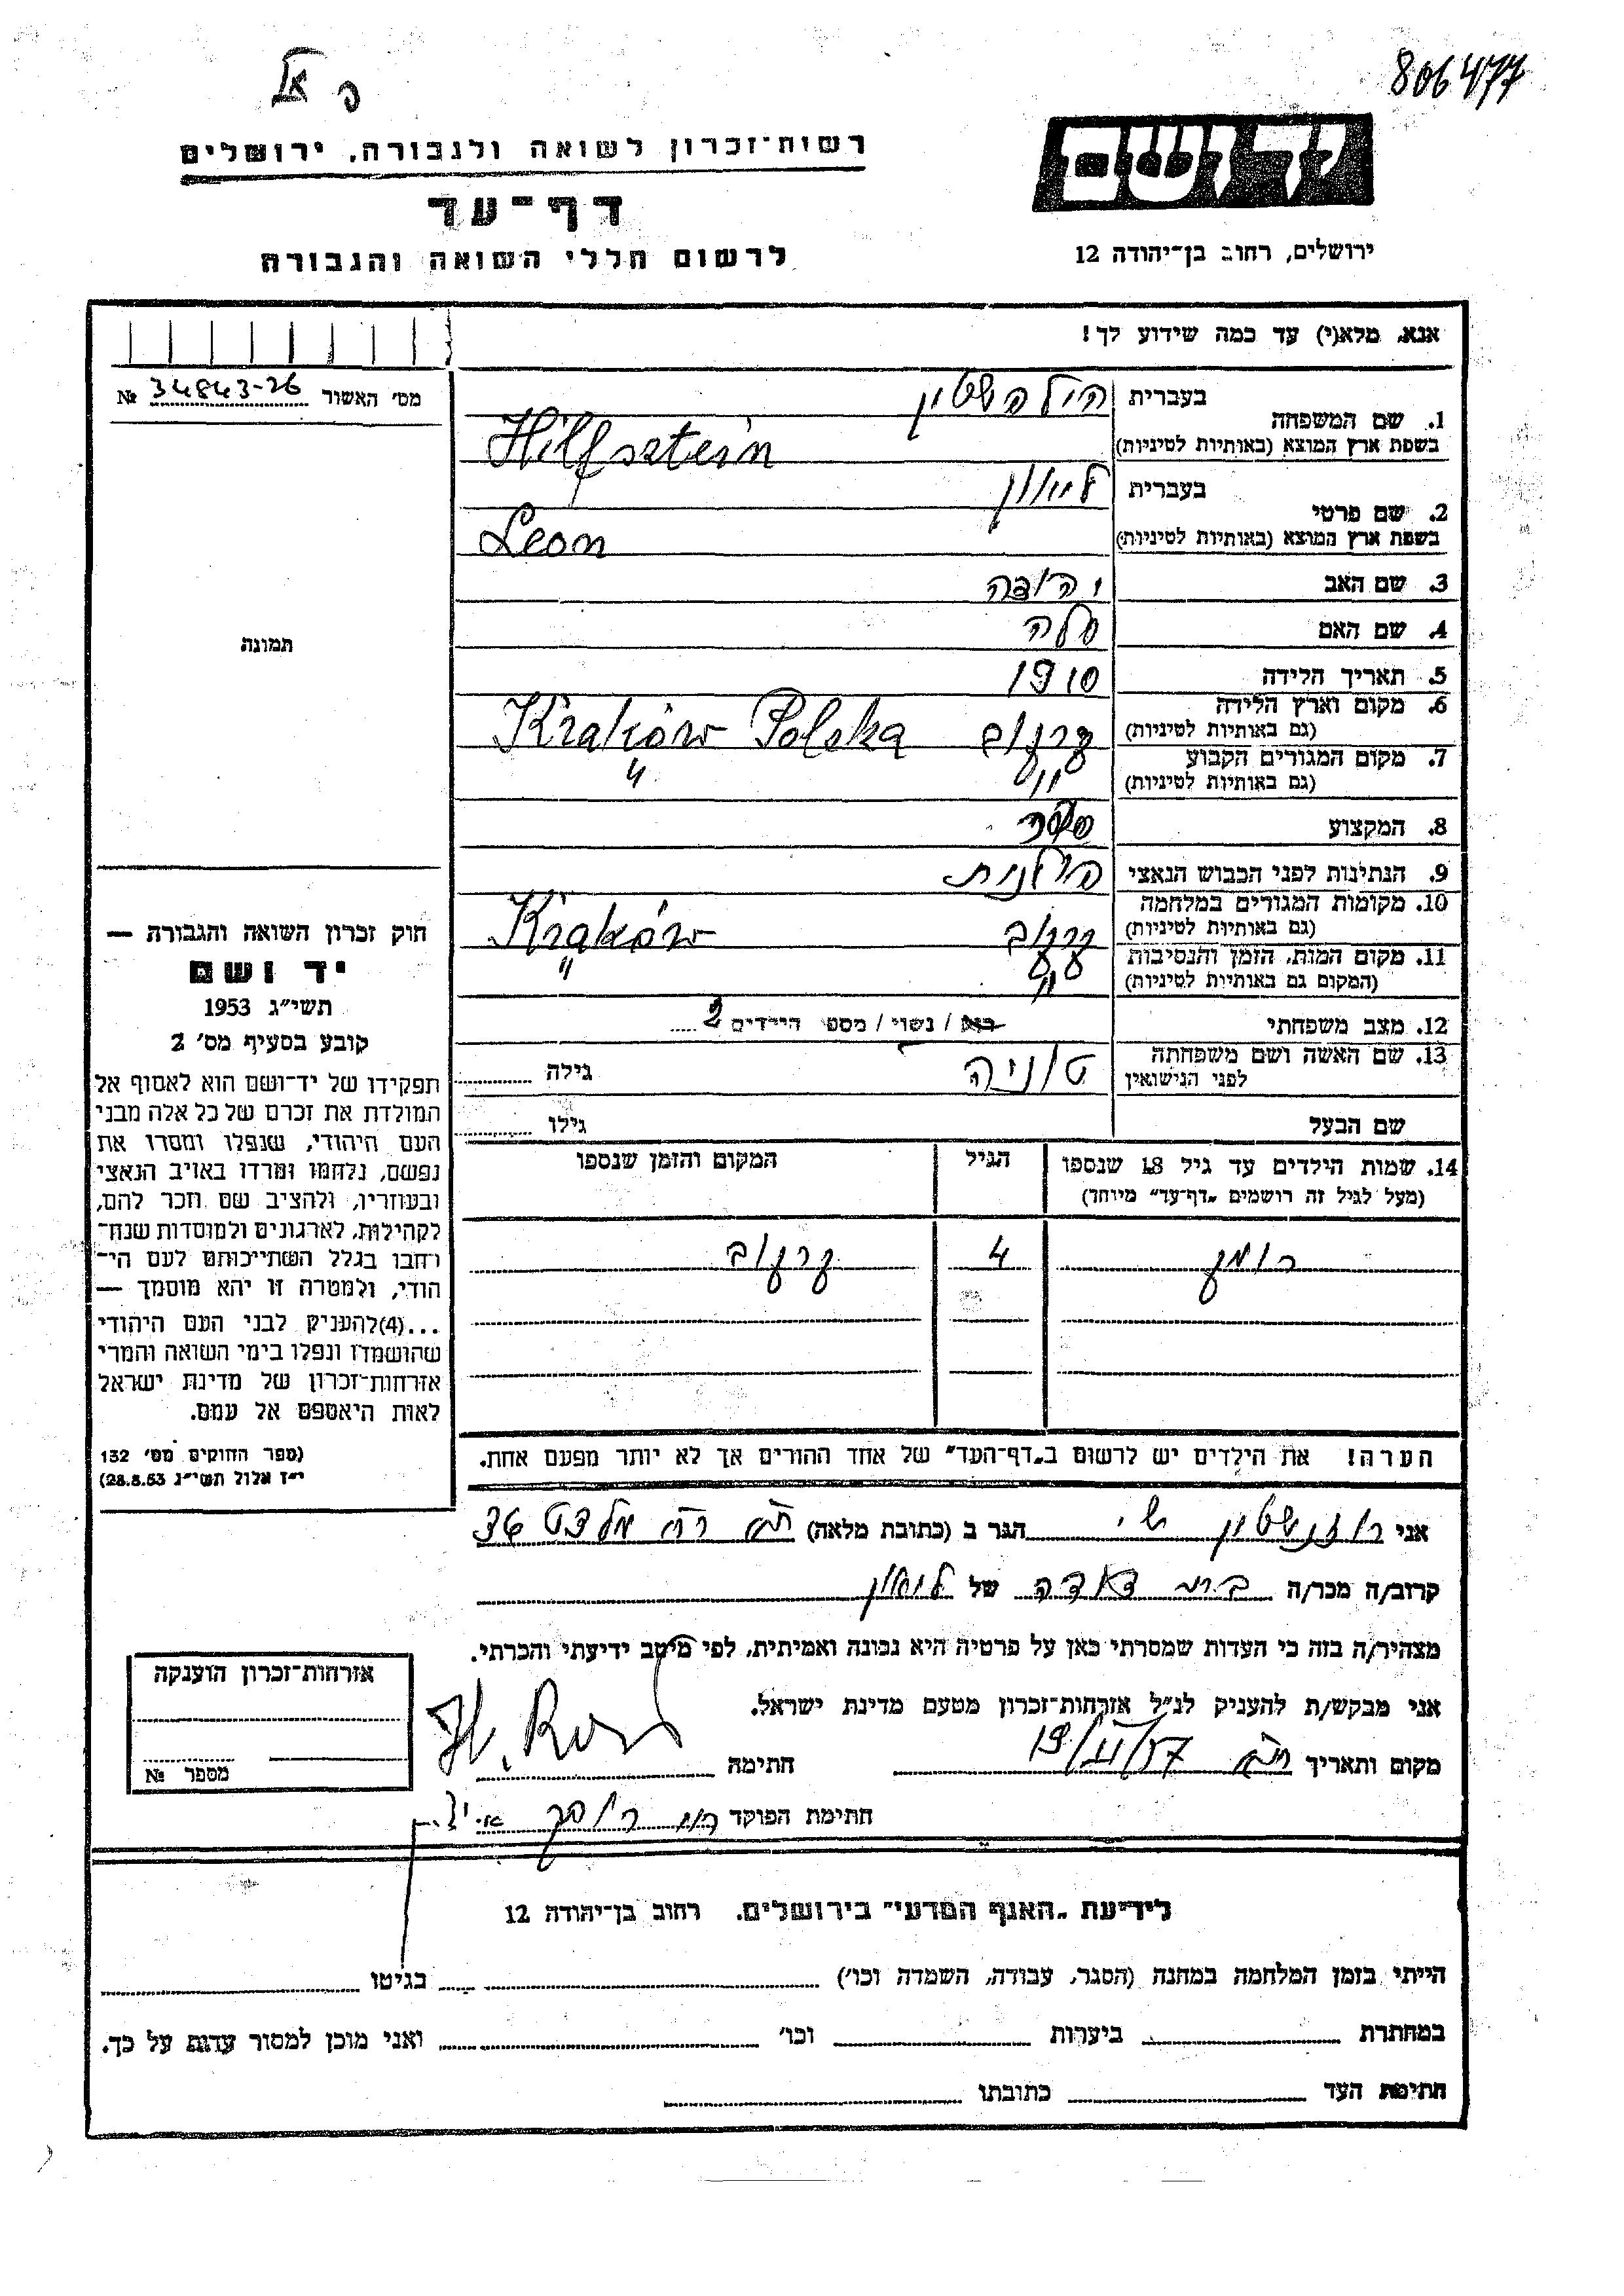 806477
פ אל
רשות־זכרון לשואה ולגבורה, ירושלים
דף־עד
לרשום חללי השואה והגבורה
יד ושם
ירושלים, רחוב בן־יהודה 12
אנא, מלא(י) עד כמה שידוע לך!
מס׳ האשור № 34843-26
תמונה
1. שם המשפחה
בעברית הילפשטין
בשפת ארץ המוצא (באותיות לטיניות) Hilfsztein
2. שם פרטי
בעברית ליאון
בשפת ארץ המוצא (באותיות לטיניות) Leon
3. שם האב יהודה
4. שם האם
5. תאריך הלידה 1910
6. מקום וארץ הלידה
(גם באותיות לטיניות) קרקוב Kraków Polska
7. מקום המגורים הקבוע
(גם באותיות לטיניות) " "
8. המקצוע
9. הנתינות לפני הכבוש הנאצי פולנית
10. מקומות המגורים במלחמה
(גם באותיות לטיניות) קרקוב Kraków
11. מקום המות, הזמן והנסיבות
(המקום גם באותיות לטיניות) " "
12. מצב משפחתי רווק / נשוי / מספר הילדים 2
13. שם האשה ושם משפחתה
לפני הנישואין טוניה גילה
שם הבעל גילו
14. שמות הילדים עד גיל 18 שנספו
(מעל לגיל זה רושמים „דף־עד” מיוחד)
הגיל
המקום והזמן שנספו
רומק 4 קרקוב
הערה! את הילדים יש לרשום ב„דף־העד” של אחד ההורים אך לא יותר מפעם אחת.
חוק זכרון השואה והגבורה —
יד ושם
תשי״ג 1953
קובע בסעיף מס׳ 2
תפקידו של יד־ושם הוא לאסוף אל
המולדת את זכרם של כל אלה מבני
העם היהודי, שנפלו ומסרו את
נפשם, נלחמו ומרדו באויב הנאצי
ובעוזריו, ולהציב שם וזכר להם,
לקהילות, לארגונים ולמוסדות שנח־
רבו בגלל השתייכותם לעם הי־
הודי, ולמטרה זו יהא מוסמך —
...(4)להעניק לבני העם היהודי
שהושמדו ונפלו בימי השואה והמרי
אזרחות־זכרון של מדינת ישראל
לאות היאספם אל עמם.
(ספר החוקים מס׳ 132
י״ז אלול תשי״ג 28.8.53)
אני רוזנשטין הגר ב (כתובת מלאה)
קרוב/ה מכר/ה בת דודה של ליאון
מצהיר/ה בזה כי העדות שמסרתי כאן על פרטיה היא נכונה ואמיתית, לפי מיטב ידיעתי והכרתי.
אני מבקש/ת להעניק לנ״ל אזרחות־זכרון מטעם מדינת ישראל.
מקום ותאריך 19/II/57 חתימה
חתימת הפוקד
אזרחות־זכרון הוענקה
מספר №
לידיעת „האגף המדעי” בירושלים, רחוב בן־יהודה 12
הייתי בזמן המלחמה במחנה (הסגר, עבודה, השמדה וכו׳) בגיטו
במחתרת ביערות וכו׳ ואני מוכן למסור עדות על כך.
חתימת העד כתובתו